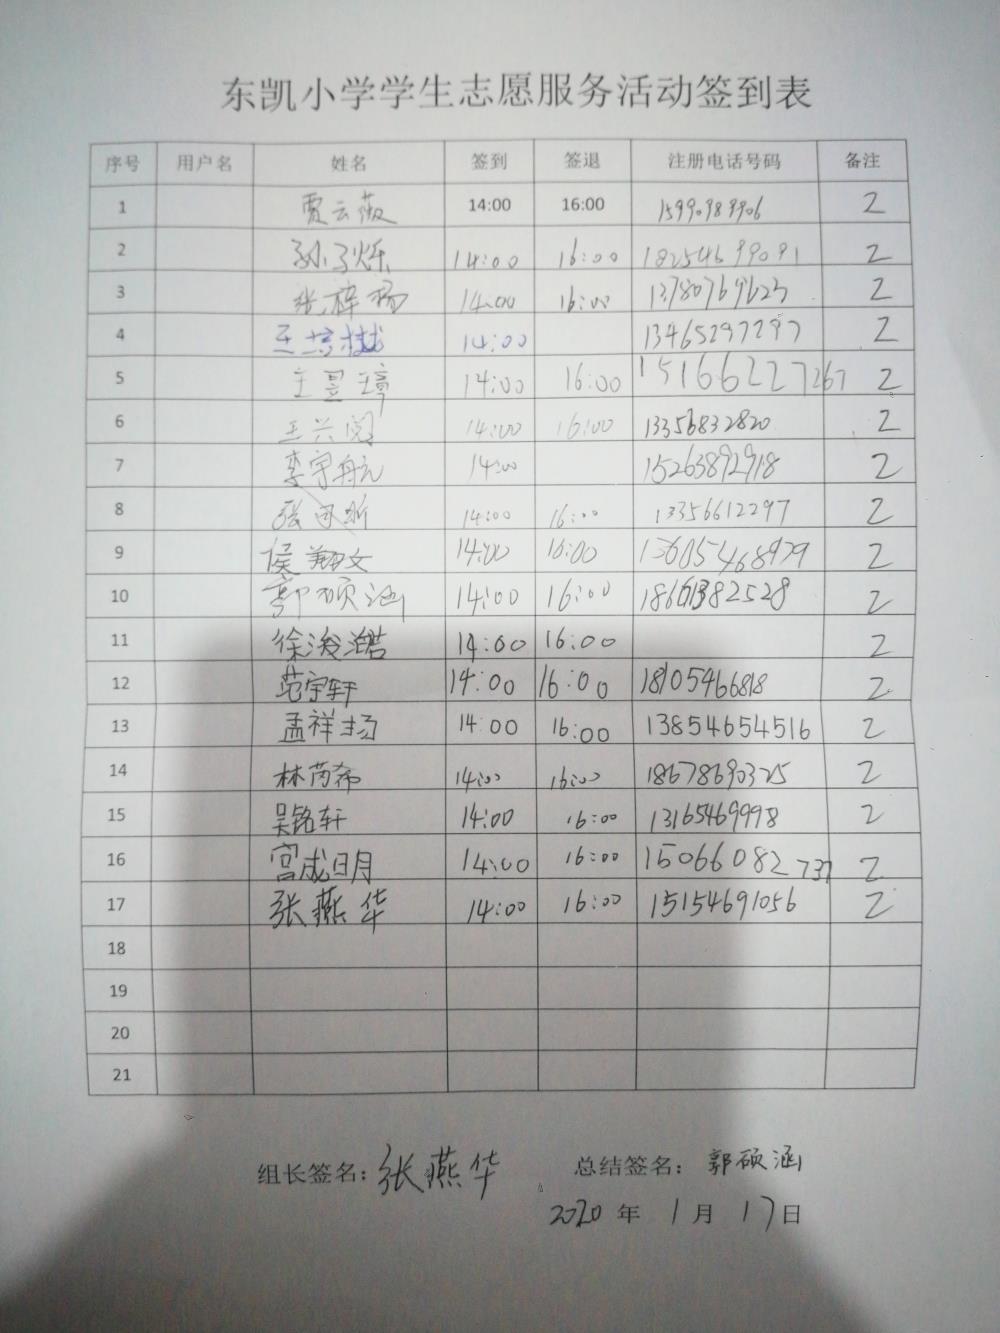 东凯小学学生志愿服务活动签到表
序号 用户名 姓名 签到 签退 注册电话号码 备注
1 贾云薇 14:00 16:00 15990989906 2
2 孙子烁 14:00 16:00 18254699091 2
3 张梓杨 14:00 16:00 13780769623 2
4 王 14:00 13465297297 2
5 王昱璋 14:00 16:00 15166227267 2
6 王兴阅 14:00 16:00 13356832820 2
7 李宇航 14:00 15263892918 2
8 张 昕 14:00 16:00 13356612297 2
9 侯翔文 14:00 16:00 13605468979 2
10 郭硕涵 14:00 16:00 18661382528 2
11 徐浚皓 14:00 16:00 2
12 范宇轩 14:00 16:00 18105466818 2
13 孟祥扬 14:00 16:00 13854654516 2
14 林芮希 14:00 16:00 18678690325 2
15 吴铭轩 14:00 16:00 13165469998 2
16 宫成明 14:00 16:00 15066082737 2
17 张燕华 14:00 16:00 15154691056 2
18
19
20
21
组长签名:张燕华 总结签名:郭硕涵
2020年1月17日